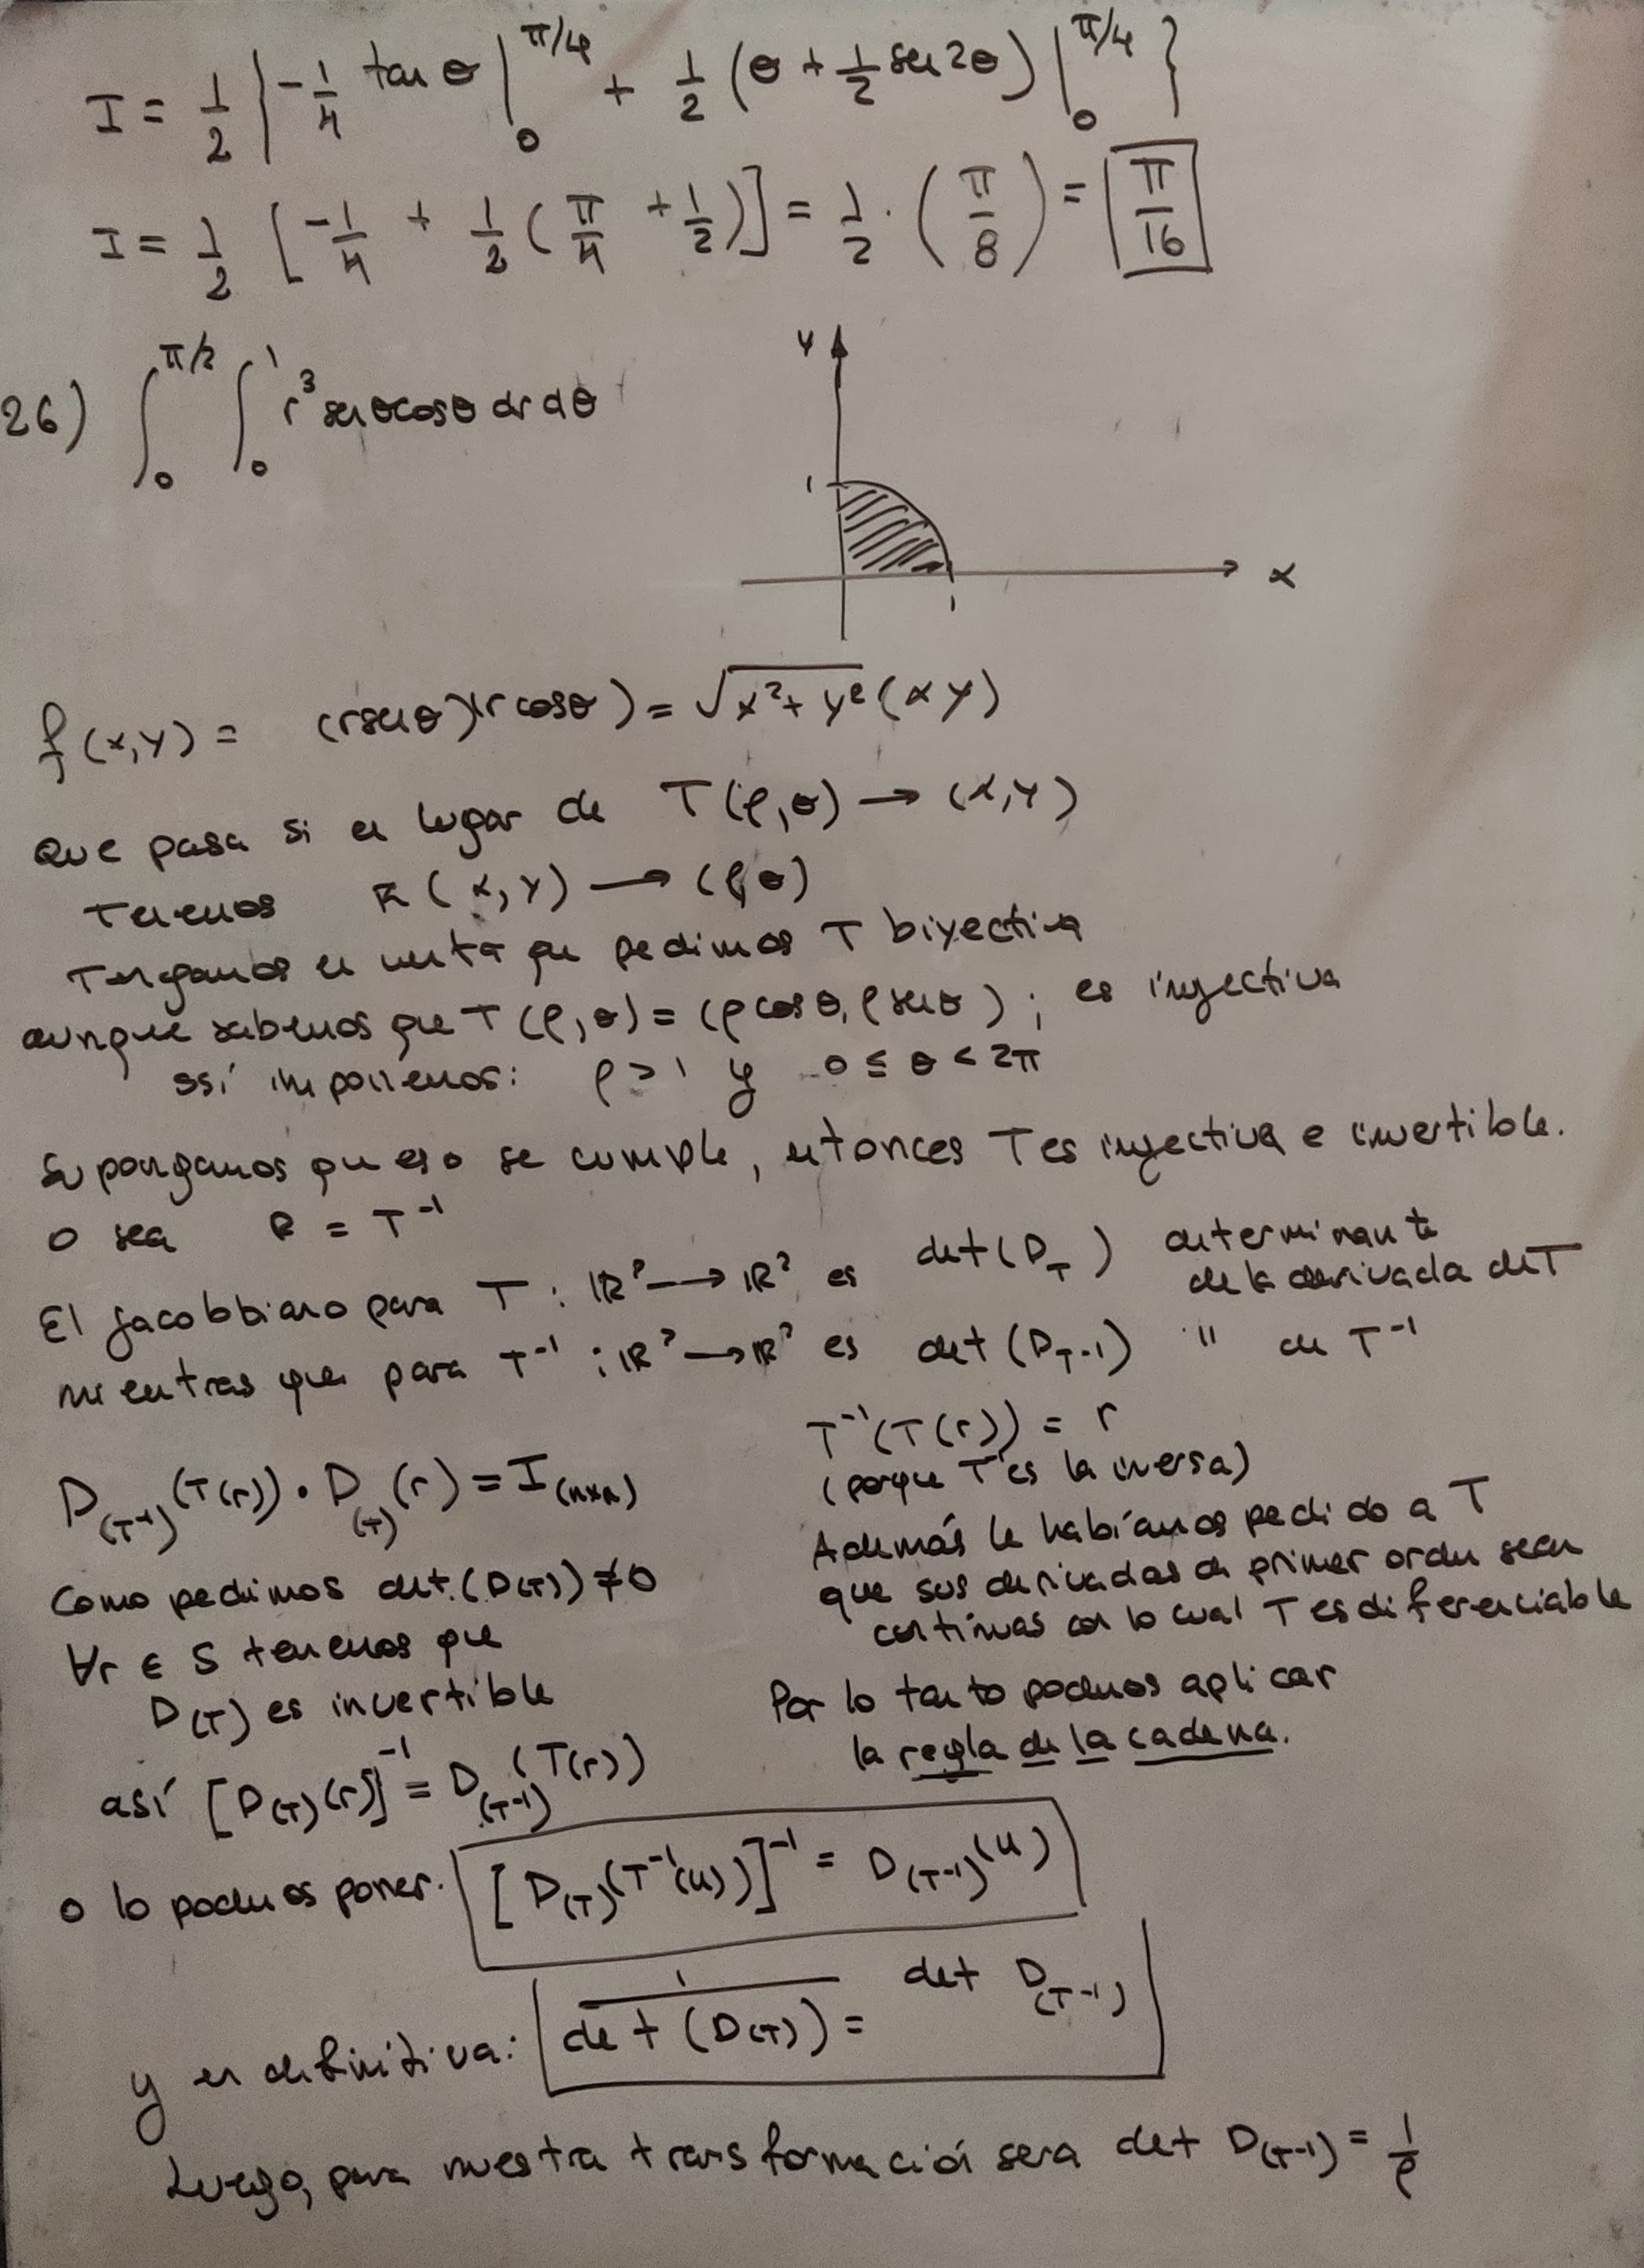 I = 1/2 { -1/4 tan θ |₀^π/4 + 1/2 (θ + 1/2 sen 2θ) |₀^π/4 }
I = 1/2 [ -1/4 + 1/2 ( π/4 + 1/2 ) ] = 1/2 · ( π/8 ) = π/16
26) ∫₀^π/2 ∫₀^1 r³ senθcosθ dr dθ
y
1
x
1
f(x,y) = (rsenθ)(r cosθ) = √(x²+y²) (xy)
Que pasa si en lugar de T(ρ,θ) → (x,y)
Tenemos R(x,y) → (ρ,θ)
Tengamos en cuenta que pedimos T biyectiva
aunque sabemos que T(ρ,θ) = (ρcosθ, ρsenθ) ; es inyectiva
así imponemos: ρ > 1 y 0 ≤ θ < 2π
Supongamos que eso se cumple, entonces T es inyectiva e invertible.
O sea R = T⁻¹
El jacobbiano para T : ℝ² → ℝ² es det(D_T) determinante
de la derivada de T
mientras que para T⁻¹ : ℝ² → ℝ² es det (D_T⁻¹) " de T⁻¹
T⁻¹(T(r)) = r
(porque T⁻¹ es la inversa)
D_(T⁻¹)(T(r)) · D_(T)(r) = I_(nxn)
Además le habíamos pedido a T
que sus derivadas de primer orden sean
continuas con lo cual T es diferenciable
Como pedimos det.(D(T)) ≠ 0
∀r ∈ S tenemos que
D(T) es invertible
Por lo tanto podemos aplicar
la regla de la cadena.
así [D(T)(r)]⁻¹ = D_(T⁻¹)(T(r))
o lo podemos poner. [D_(T)(T⁻¹(u))]⁻¹ = D_(T⁻¹)(u)
y en definitiva: 1/det (D(T)) = det D_(T⁻¹)
Luego, para nuestra transformación sera det D_(T⁻¹) = 1/ρ